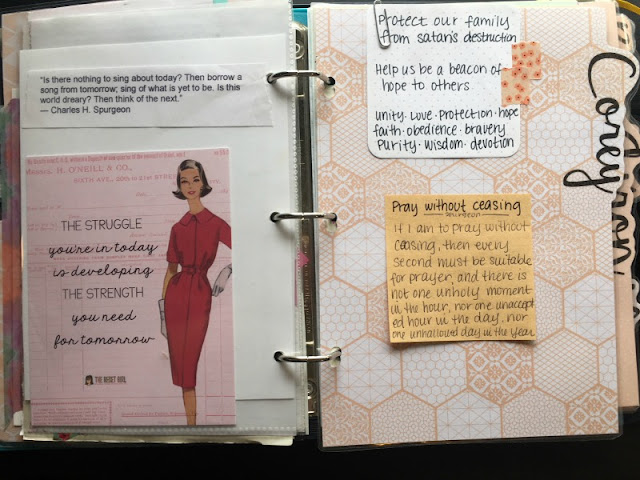 "Is there nothing to sing about today? Then borrow a
song from tomorrow; sing of what is yet to be. Is this
world dreary? Then think of the next."
— Charles H. Spurgeon
H. O'NEILL & CO.,
SIXTH AVE., 20th to 21st
THE STRUGGLE
you're in today
is developing
THE STRENGTH
you need
for tomorrow
THE RESET GIRL
Protect our family
from satan's destruction
Help us be a beacon of
hope to others
unity · Love · Protection · hope
faith · obedience · bravery
Purity · Wisdom · devotion
Pray without ceasing
spurgeon
If I am to pray without
ceasing, then every
second must be suitable
for prayer, and there is
not one unholy moment
in the hour, nor one unaccept
ed hour in the day, nor
one unhallowed day in the year
Corey